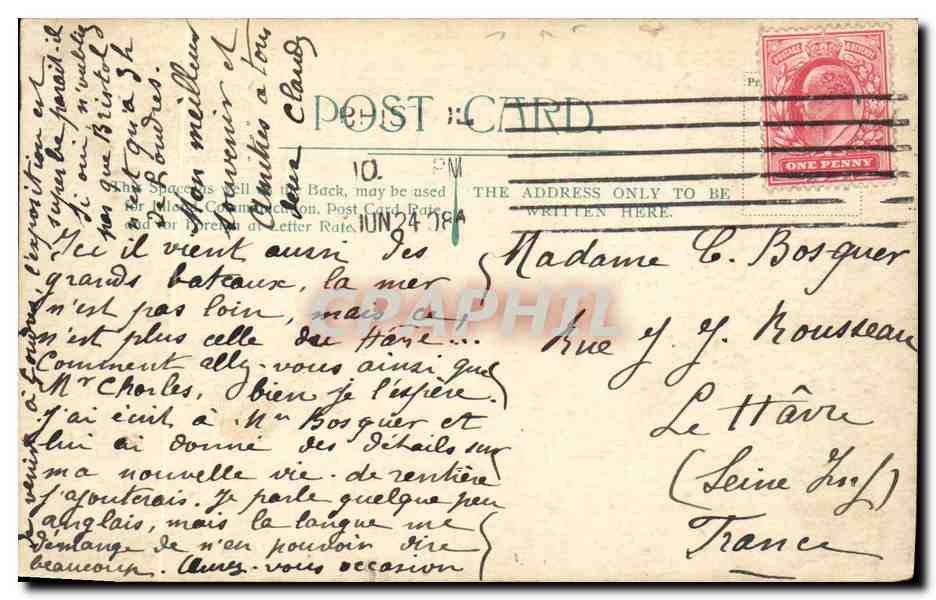 POST CARD.
10. PM
JUN 24 08
This Space, as well as the Back, may be used
for Inland Communication, Post Card Rate,
and for Foreign at Letter Rate.
THE ADDRESS ONLY TO BE
WRITTEN HERE.
POSTAGE & REVENUE
ONE PENNY
Ici il vient aussi des
grands bateaux, la mer
n'est pas loin, mais ce
n'est plus celle du Hâvre...
Comment allez-vous ainsi que
Mr Charles, bien je l'espère.
J'ai écrit à Bosquer et
lui ai donné des détails sur
ma nouvelle vie - de rentière
j'ajouterais. Je parle quelque peu
anglais, mais la langue me
démange de n'en pouvoir dire
beaucoup. Aurez-vous occasion
de venir à Londres, l'exposition est
superbe parait-il
Si oui n'oubliez
pas que Bristol
n'est qu'à 3h
de Londres.
Mon meilleur
souvenir et
amitiés à tous
Claude
Madame C. Bosquer
Rue J. J. Rousseau
Le Hâvre
(Seine Inf)
France
CPAPHIL